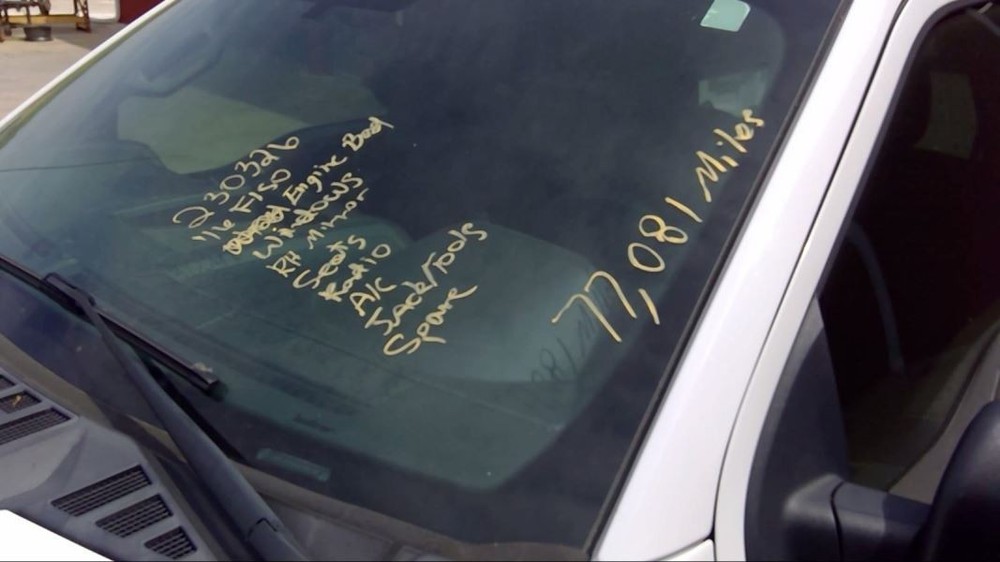 230326
'16 F150
Engine Bad
Windows
RH Mirror
Seats
Radio
A/C
Jack/Tools
Spare
77,081 Miles